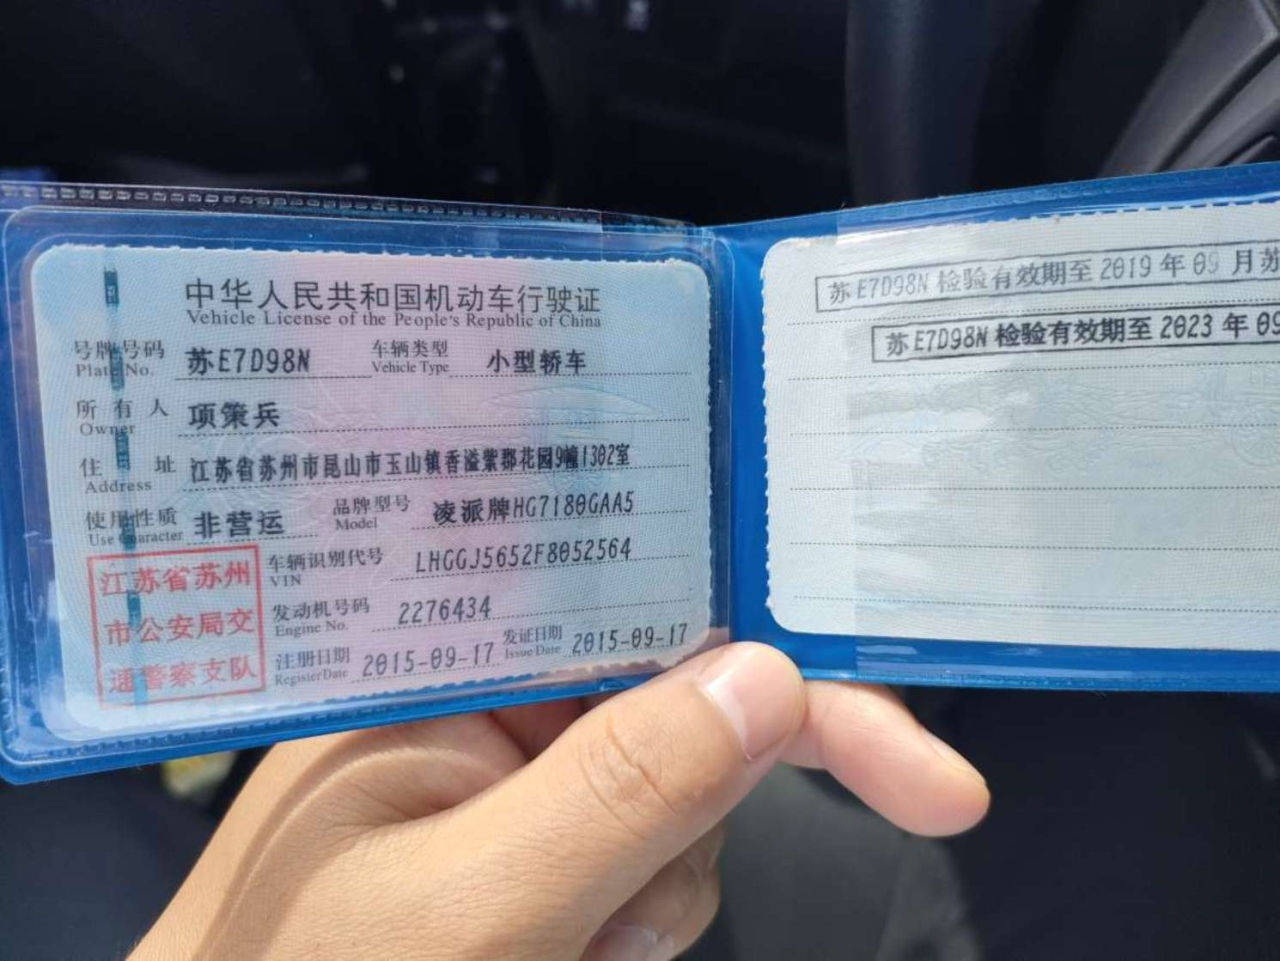 中华人民共和国机动车行驶证
Vehicle License of the People's Republic of China
号牌号码 苏E7D98N 车辆类型 小型轿车
Plate No. Vehicle Type
所有人 项策兵
Owner
住址 江苏省苏州市昆山市玉山镇香溢紫郡花园9幢1302室
Address
使用性质 非营运 品牌型号 凌派牌HG7180GAA5
Use Character Model
车辆识别代号 LHGGJ5652F8052564
VIN
发动机号码 2276434
Engine No.
注册日期 2015-09-17 发证日期 2015-09-17
Register Date Issue Date
江苏省苏州
市公安局交
通警察支队
苏E7D98N 检验有效期至 2019年09月苏
苏E7D98N 检验有效期至 2023年09